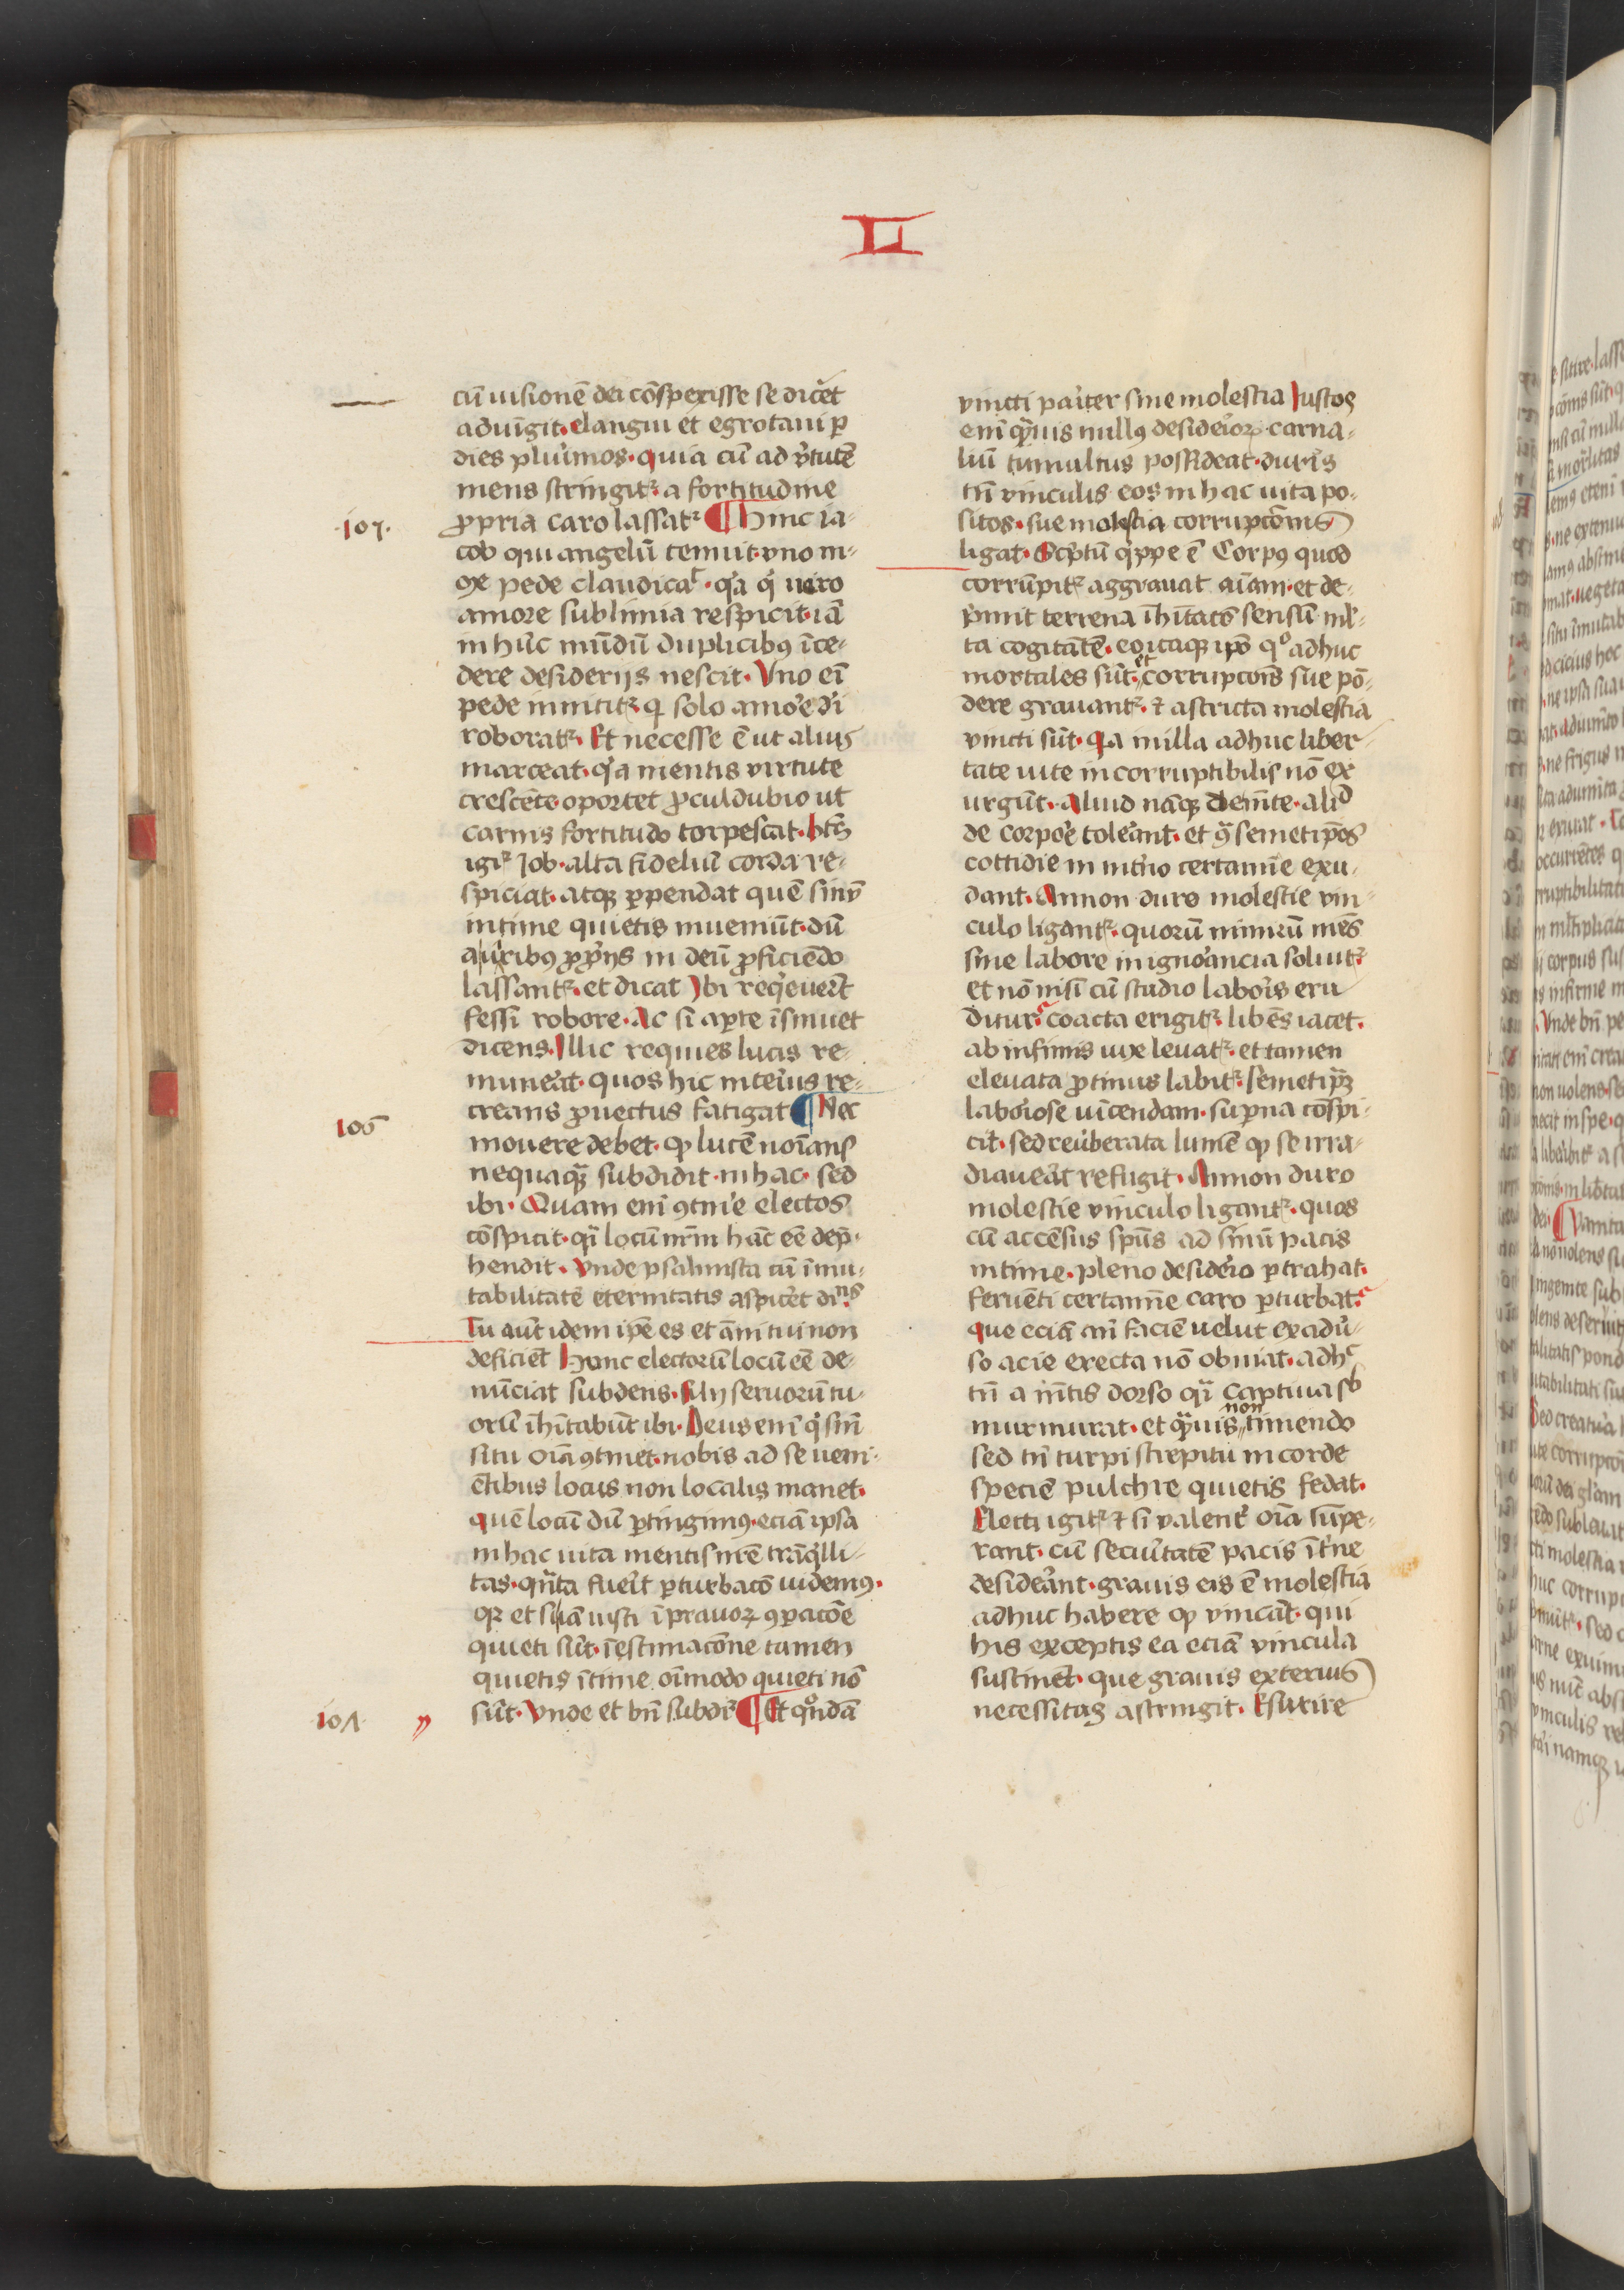 L I
cū uisionē dei cōspexisse se dic̄et
aduīgit. elangui et egrotaui ꝑ
dies plurimos. quia cū ad v̓tutē
mens stringitᷣ. a fortitudine
ꝓpria caro lassatᷣ ¶ Hinc ia-
.107.
cob qui angelū tenuit. vno m-
ox pede claudicat. qꝛa q̓ uero
amore sublimia respicit. iā
in hūc mūdū duplicibꝰ īce-
dere desiderijs nescit. Vno eī
pede innititᷣ. qͥ solo amoꝛe dī
roboratᷣ. Et necesse ē ut alius
marceat. qꝛa mentis virtute
crescēte. oportet ꝓculdubio ut
carnis fortitudo torpescat. bt̄s
igiᷣ Iob. alta fideliū corda re-
spiciat. atqꝫ ꝑpendat quē sinū
intime quietis inueniūt. dū
auribꝰ ꝓpͥijs in deū ꝓficiēdo
lassantᷣ. et dicat Ibi req̓euer̄t
fessi robore. Ac si aꝑte īsinuet
dicens. Illic requies lucis re-
muneͣt. quos hic interius re-
creans ꝓuectus fatigat ¶ Nec
106
mouere debet. ꝙ lucē noīans
nequaqͣꝫ subdidit. in hac. sed
ibi. Quam enī ꝯtinē electos
cōspicit. qͣi locū nr̄m hāc eē dep̄-
hendit. Vnde psalmista cū īmu-
tabilitatē eternitatis aspic̄et dicns.
Tu aūt idem ip̄e es et āni tui non
deficiēt Hanc electorū locū eē de-
nūciat subdens. filij seruorū tu-
orū īhītabūt ibi. Deus enī q̓ sine
situ oīa ꝯtinet. nobis ad se ueni-
ētibus locus non localis manet.
quē locū dū ꝑtingimꝰ. eciā ipsa
in hac uita mentis nr̄e trāq̓lli-
tas. qͣnta fueͥt ꝑturbacō uidemꝰ.
qꝛ et si iā iusti ī prauoꝝ ꝯꝑacōe
quieti sūt. ī estimacōne tamen
quietis ītime oīmodo quieti nō
sūt. Vnde et bn̄ subdr̄ ¶ Et qͦndā
.107.
vincti pariter sine molestia Iustos
enī qͣuis nullꝰ desideriorꝝ carna-
liū tumultus possideat. duris
tn̄ vinculis eos in hac uita po-
sitos. sue molestia corrupcōnis
ligat. Scͥptū qͥppe ē Corpꝰ quod
corrūpitᷣ aggrauat aīam. et de-
pͥmit terrena īhītacō sensū ml̓-
ta cogitātē. eo itaqꝫ ipō qͦ adhuc
mortales sūt. et corrupcōis sue pō-
dere grauantᷣ. ⁊ astricta molestia
vincti sūt. qͥa in illa adhuc liber-
tate uite incorruptibilis nō ex
urgūt. Aliud nāqꝫ de mēte. alid
de corpoꝛe toleͣnt. et ꝯͣ semetip̄os
cottidie in int̓no certamīe exu-
dant. Annon duro molestie vin-
culo ligantᷣ. quorū nimirū mēs
sine labore in ignorancia soluitᷣ
et nō nisi cū studio laboris eru
ditur. coacta erigitᷣ. libēs iacet.
ab infimis uix leuatᷣ. et tamen
eleuata ꝓtinus labitᷣ. semetip̄ꝫ
laboꝛiose uīcendam. suꝑna cōspi-
cit. sed reuerberata lumē ꝙ se irra-
diaueͣt refugit. Annon duro
molestie vinculo ligantᷣ. quos
cū accēsus sp̄us ad sinū pacis
intime. pleno desiderio ꝑtrahat.
feruēti certamīe caro ꝑturbat.
que eciā cū faciē uelut ex adū-
so acie erecta nō obuiat. adhͨ
tn̄ a mētis dorso qͣi captiua sb
murmurat. et qͣuis non timendo
sed tn̄ turpi strepitu in corde
speciē pulchre quietis fedat.
Electi igitᷣ ⁊ si valenẗ oīa suꝑe-
rant. cū securitatē pacis īt̓ne
desideͣnt. grauis eis ē molestia
adhuc habere ꝙ vincāt. qui
his exceptis ea eciā vincula
sustinēt. que grauis exterius
necessitas astringit. Esurire